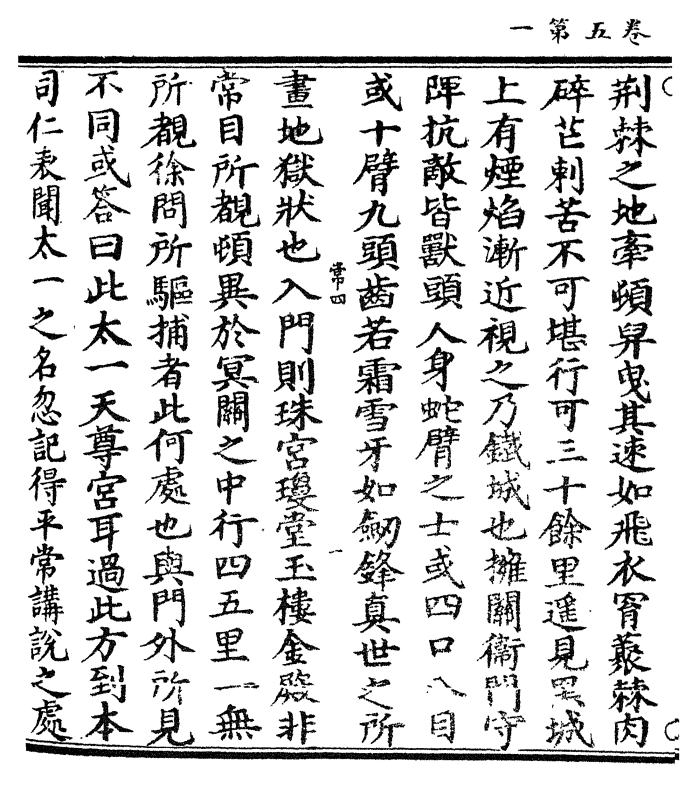 卷五第一
荆棘之地牽頓舁曳其速如飛衣胷䕺棘肉
碎芒刺苦不可堪行可三十餘里遥見黑城
上有煙焰漸近視之乃鐵城也擁關衞門守
陣抗敵皆獸頭人身蛇臂之士或四口八目
或十臂九頭齒若霜雪牙如劒鋒真世之所
常四
畫地獄狀也入門則珠宮瓊堂玉樓金殿非
常目所覩頓異於冥關之中行四五里一無
所覩徐問所驅捕者此何處也與門外所見
不同或答曰此太一天尊宮耳過此方到本
司仁表聞太一之名忽記得平常講說之處